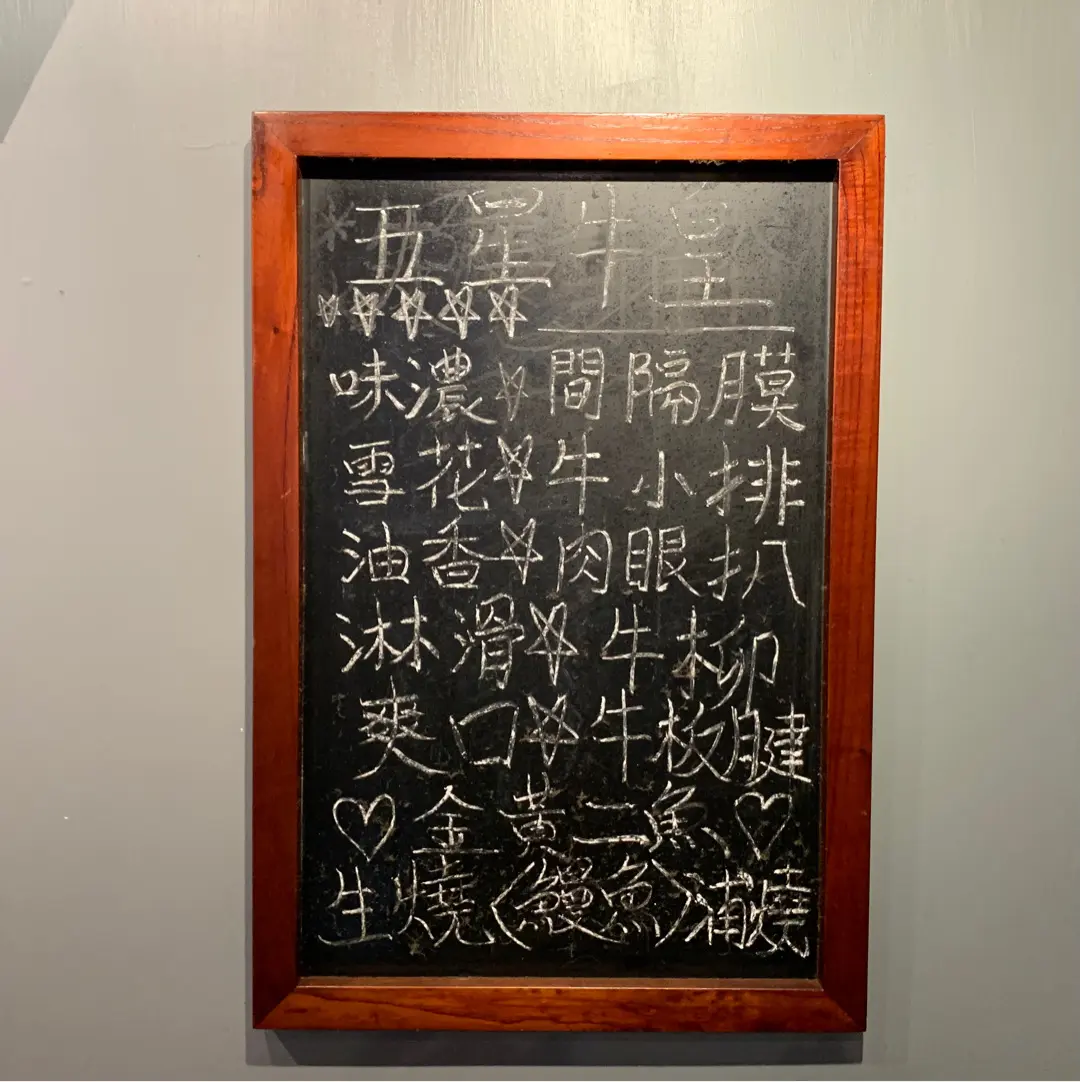 五星牛皇
☆☆☆☆☆
味濃☆間隔膜
雪花☆牛小排
油香☆肉眼扒
淋滑☆牛柳
爽口☆牛板腱
♡金黃二魚♡
生燒(鰻魚)浦燒